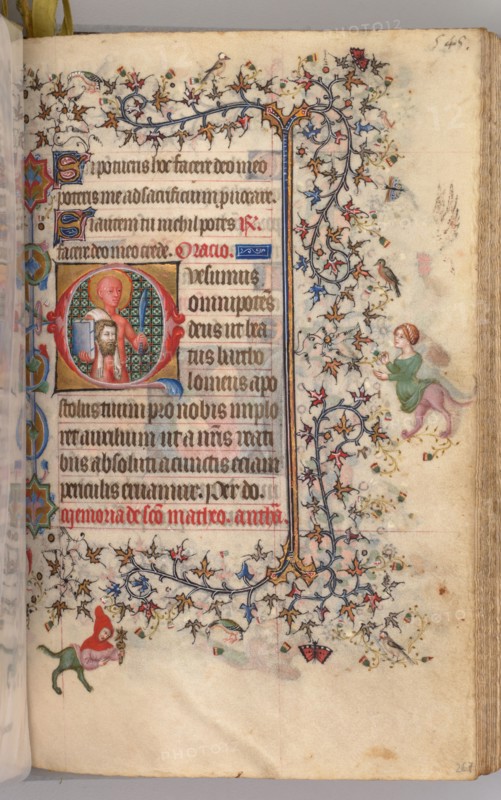 545.
Si potueris hoc facere deo meo
poteris me ad sacrificium puocare.
Si autem tu nichil potes R̃.
facere deo meo crede. Oracio.
Quesumus
omnipotẽs
deus ut bea
tus bartho
lomeus apo
stolus tuum pro nobis implo
ret auxilium ut a nr̃is reati
bus absoluti a cunctis eciam
periculis eruamur. Per do.
Memoria de sc̃o matheo. anth̃a.
PHOTO12